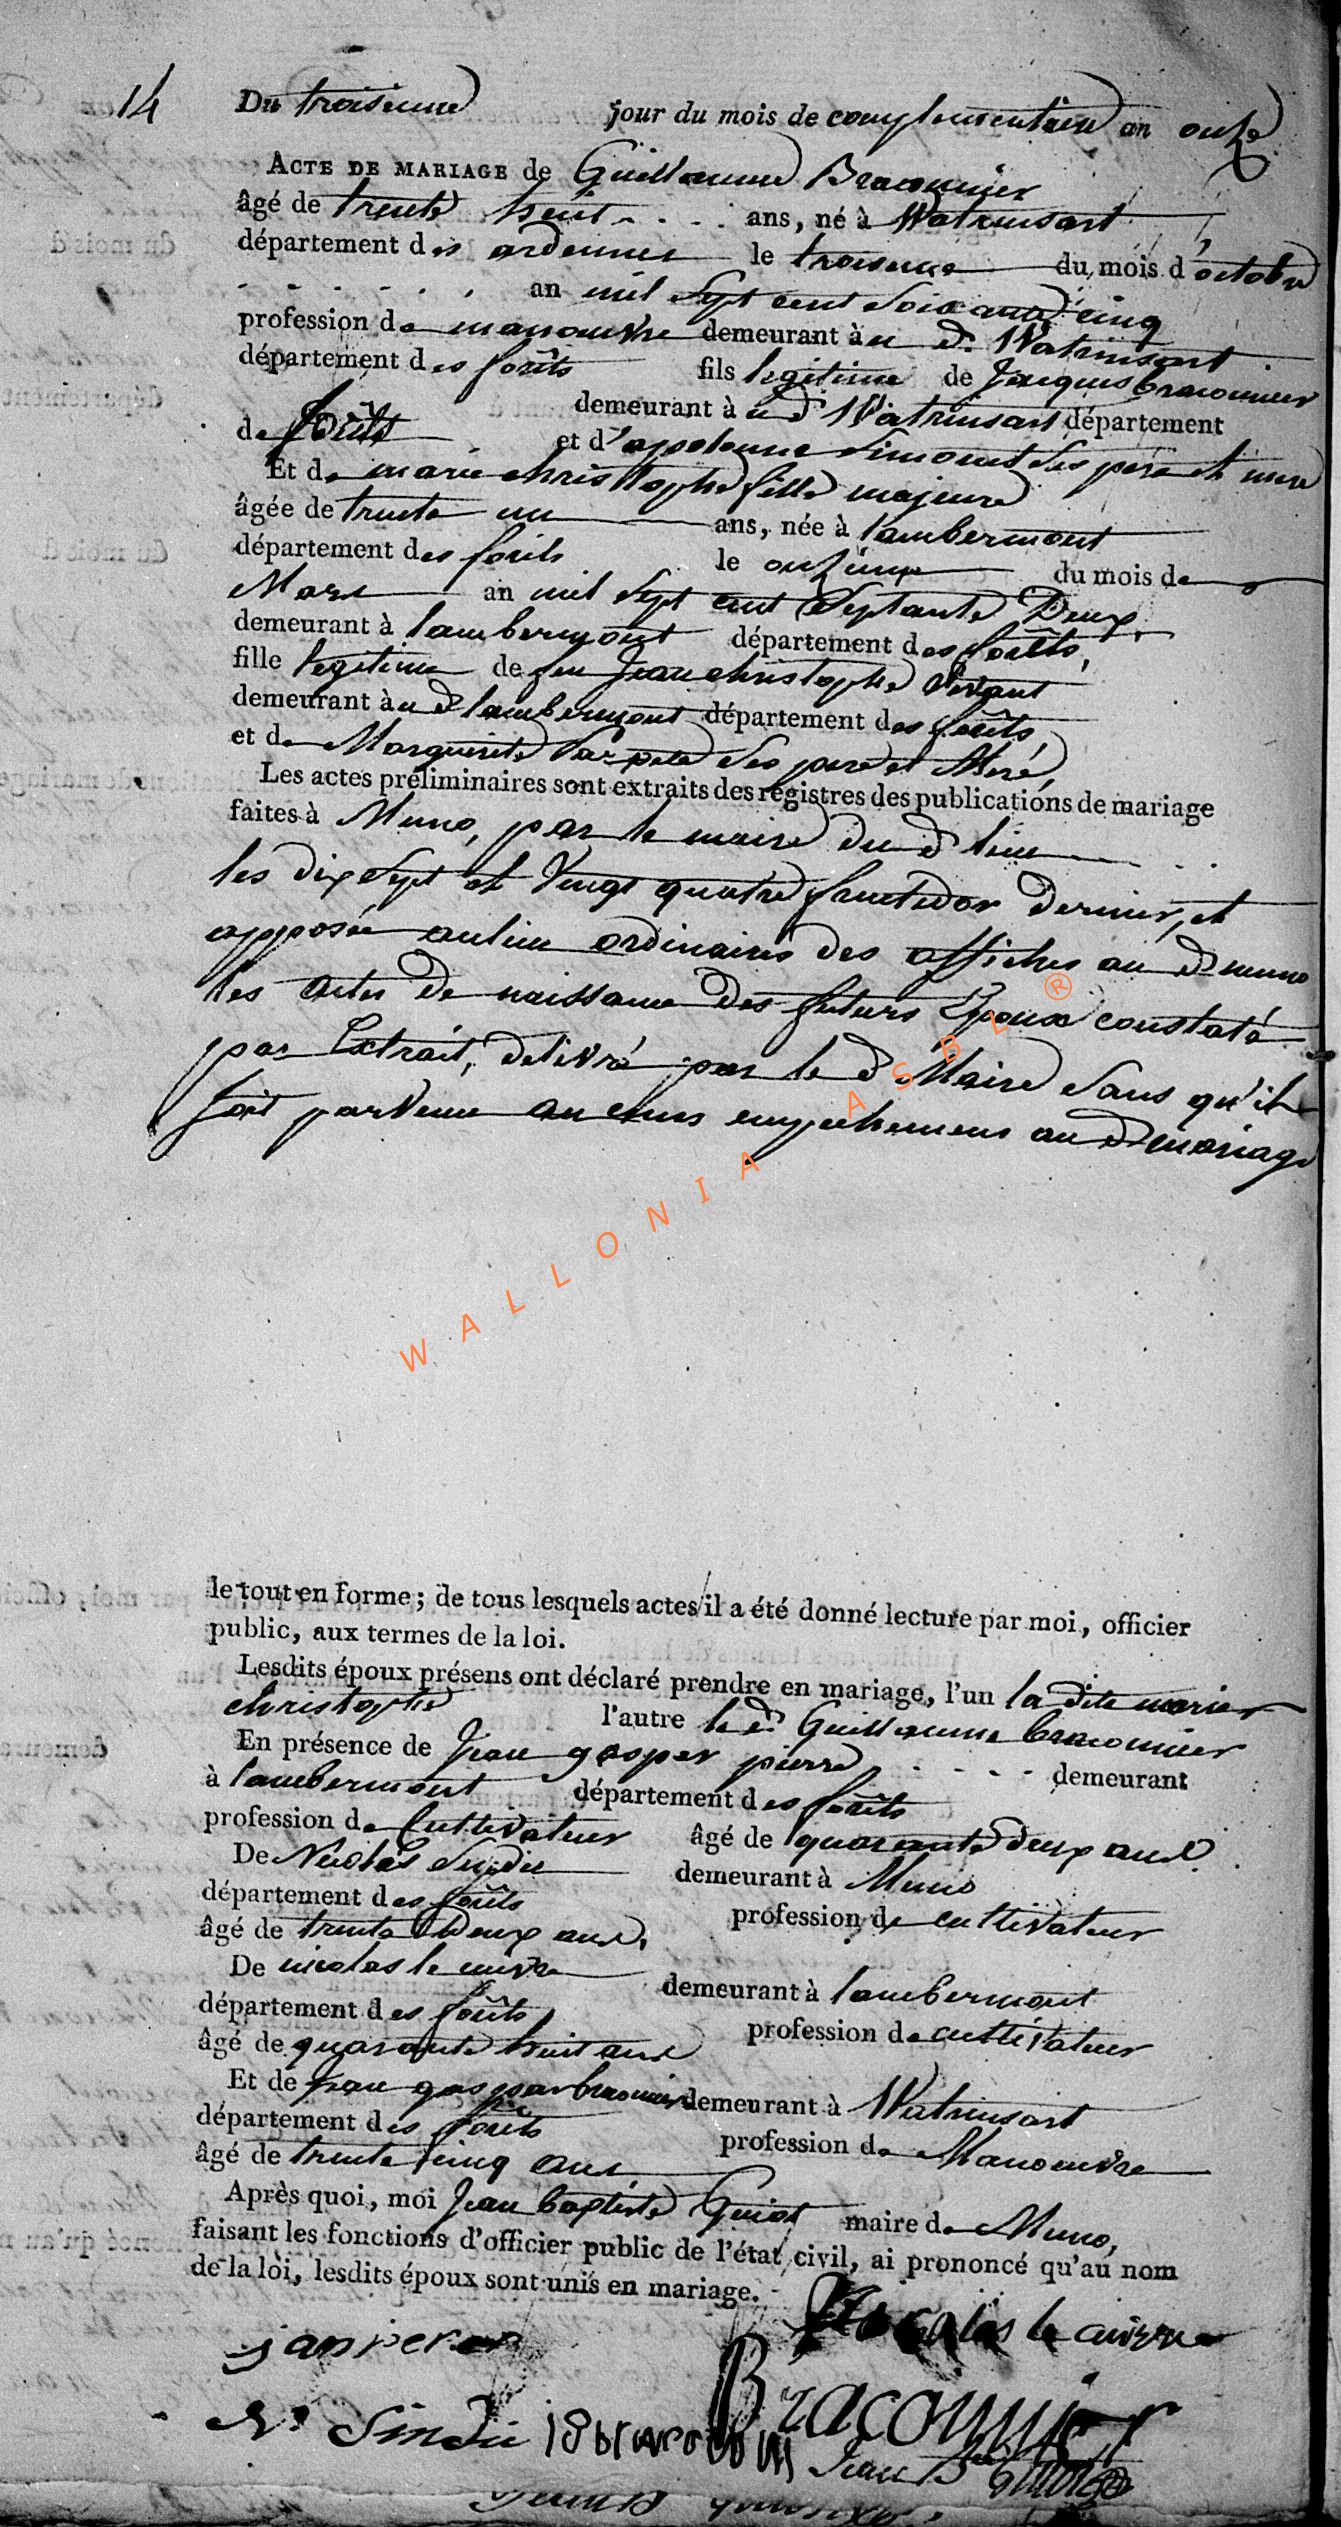 14
Du troisieme jour du mois de complementaire an onze
ACTE DE MARIAGE de Guillaume Braconnier
âgé de trente huit ans, né à Watrinsart
département des ardennes le troiseme du mois d'octobre
an mil sept cent soixante cinq
profession de manouvre demeurant à u d. Watrinsart
département des forêts fils legitime de Jacques braconnier
demeurant à u d Watrinsart département
de forêts et d'apolonne Simonet ses pere et mere
Et de marie christophe fille majeure
âgée de trente un ans, née à lambermont
département des forêts le onzieme du mois de
Mars an mil sept cent septante Deux
demeurant à lambermont département des forêts,
fille legitime de feu Jean christophe vivant
demeurant à u d lambermont département des forêts,
et de Marguerite ses pere et Mere,
Les actes préliminaires sont extraits des registres des publications de mariage
faites à Muno, par le maire du d lieu
les dix sept et vingt quatre fructidor dernier, et
apposée au lieu ordinaires des affiches au d muno
les actes de naissance des futurs Epoux constaté
par Extrait, delivré par le d Maire sans qu'il
soit parvenu aucuns empechemens au d mariage
WALLONIA ASBL ®
le tout en forme ; de tous lesquels actes il a été donné lecture par moi, officier
public, aux termes de la loi.
Lesdits époux présens ont déclaré prendre en mariage, l'un la dite marie
christophe l'autre le d. Guillaume braconnier
En présence de Jean gasper pierre demeurant
à lambermont département des forêts
profession de Cultivateur âgé de quarante deux ans.
De Nicolas demeurant à Muno
département des forêts profession de cultivateur
âgé de trente Deux ans,
De nicolas le cuivre demeurant à lambermont
département des forêts profession de cultivateur
âgé de quarante huit ans
Et de jean gaspar braconnier demeurant à Watrinsart
département des forêts profession de Manouvre
âgé de trente cinq ans
Après quoi, moi Jean baptiste Guiot maire de Muno,
faisant les fonctions d'officier public de l'état civil, ai prononcé qu'au nom
de la loi, lesdits époux sont unis en mariage.
le cuivre
Braconnier
Jean